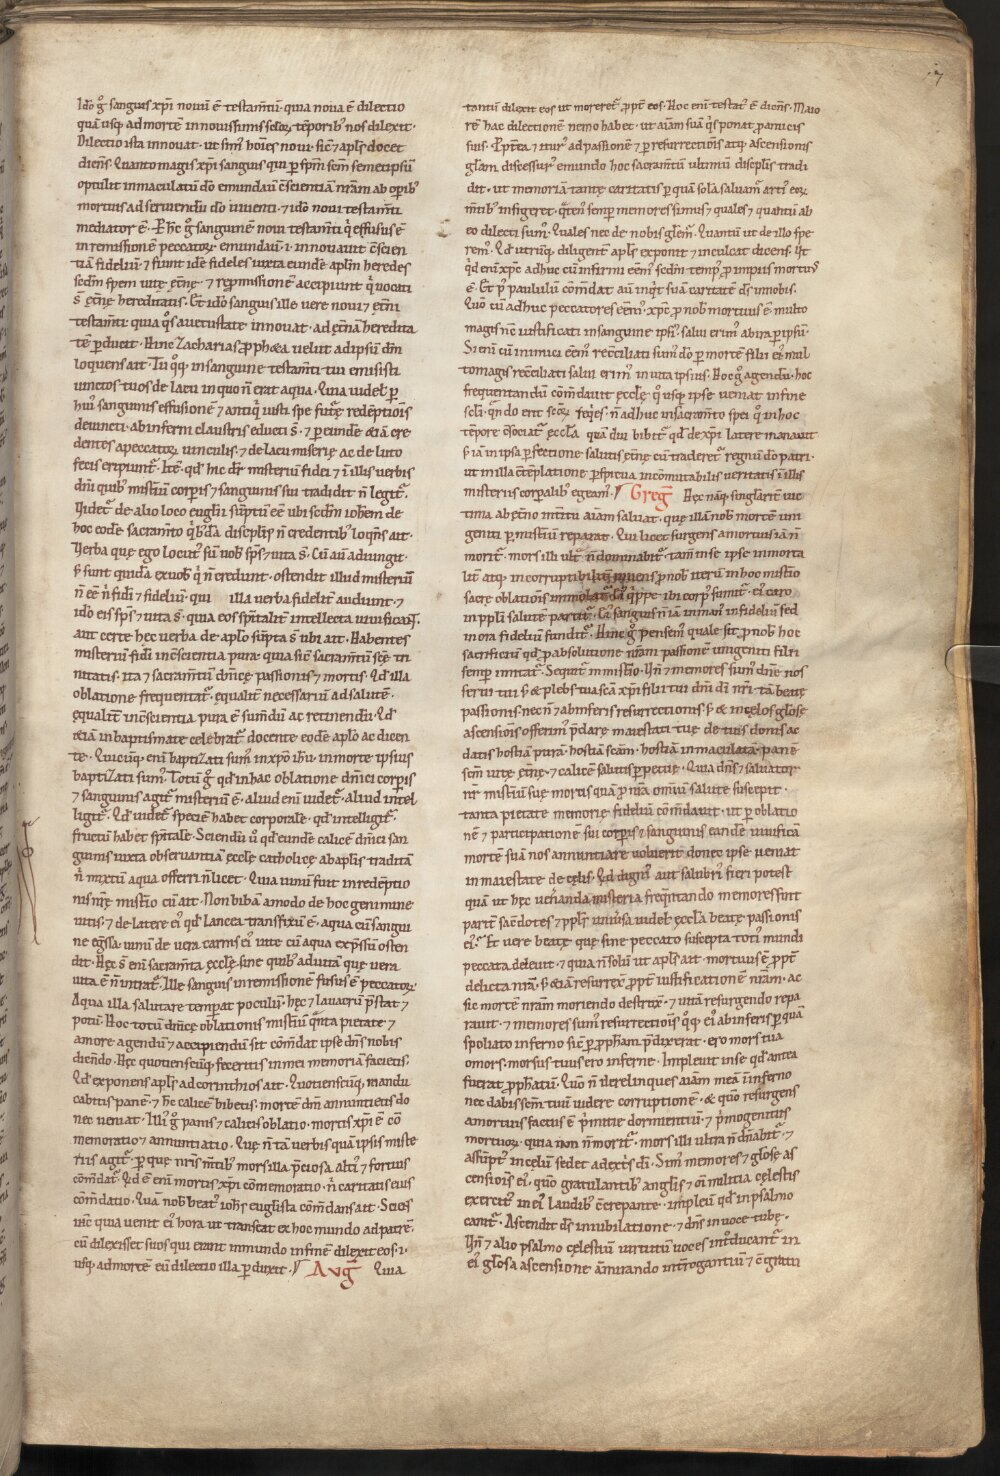 17
Ido g̊ sanguis xp̄i nouū ē testam̄tū. quia noua ē dilectio
quā usq; ad mortē in nouissimis sc̄loꝝ tēporib; nos dilexit.
Dilectio ista innouat. ut sim; hoīes noui. sic̄ & apl̄s docet
diēns. Quanto magis xp̄i sanguis qui ꝑ sp̄m sc̄m semetipsū
optulit inmaculatū dō emundaū c̄scientiā nr̄am ab opib;
mortuis ad seruiendū dō uiuenti. ⁊ idō noui testam̄ti
mediator ē. P h̄c g̊ sanguinē noui testam̄ti q̇ effusus ē
in remissionē peccatoꝝ. emundaū. i. innouauit c̄scien
tiā fideliū. ⁊ fiunt idē fideles iuxta eundē aplm̄ heredes
sedm̄ spem uitę ęt̄nę. ⁊ rep̄missionē accipiunt q̇ uocati
s̄ ęt̄nę hereditatis. Et idō sanguis ille uere noui ⁊ ęt̄ni
testam̄ti. quia q̊s a uetustate innouat. ad ęt̄nā heredita
tē ꝑducit. Hinc Zacharias ꝓpheta uelut ad ipsū dm̄
loquens ait. Tu q̊q; in sanguine testam̄ti tui emisisti
uinctos tuos de lacu in quo n̄ erat aqua. Quia uidel; ꝑ
hui; sanguinis effusionē ⁊ antiq̇ iusti spe futurę redēptiōis
deuincti. ab inferni claustris educti s̄. ⁊ ꝑ eundē & iā cre
dentes a peccatoꝝ uinculis. ⁊ de lacu miserię ac de luto
fecis eripiunt᷑. Itē qd̄ hic dr̄ misteriū fidei ⁊ ī illis uerbis
dn̄i quib; mistiū corpis ⁊ sanguinis sui tradidit n̄ legit᷑.
Uidet᷑ de alio loco eugl̄ii sūptū eē ubi sedm̄ ioh̄em de
hoc eodē sacram̄to q̇b;dā disciplis n̄ credentib; loqn̄s ait.
Uerba quę ego locut; sū uob̄ sp̄s ⁊ uita s̄. Cū aū adiungit.
S; sunt quidā ex uob̄ q̇ n̄ credunt. ostendit illud misteriū
n̄ eē n̄ fidī ⁊ fideliū. qui illa uerba fidelit̄ audiunt. ⁊
ido eis sp̄s ⁊ uita s̄. quia eos sp̄italit̄ intellecta uiuificaꝗ.
aut certe hęc uerba de aplo sūpta s̄ ubi ait. Habentes
misteriū fidī in c̄scientia pura. quia sic̄ sacram̄tū sc̄ę tri
nitatis. ita ⁊ sacram̄tū dn̄icę passionis ⁊ mortis. Qd̄ illa
oblatione frequentat᷑. ęqualit̄ necessariū ad salutē.
ęqualit̄ in c̄scientia pura ē sum̄dū ac retinendū. Qd̄
& iā in baptismate celebrat᷑ docente eodē aplo ac dicen
te. Quicūq; enī baptizati sum; in xp̄o ih̄u. in morte ipsius
baptizati sum;. Totū g̊ qd̄ in hac oblatione dn̄ici corpis
⁊ sanguinis agit᷑ misteriū ē. aliud enī uidet᷑. aliud intel
ligit᷑. Qd̄ uidet᷑ speciē habet corporale. qd̄ intelligit᷑.
fructū habet sp̄itale. Sciendū ū qd̄ eundē calicē dn̄ici san
guinis iuxta obseruantiā ęcclę catholicę ab aplis traditā
n̄ mixtū aqua offerri n̄ licet. Quia uinū fuit in redēptio
nis n̄rę mistio cū ait. Non bibā amodo de hoc genimine
uitis. ⁊ de latere ei; qd̄ lancea transfixū ē. aqua cū sangui
ne egssa. uinū de uera carnis ei; uite cū aqua expssū osten
dit. Hęc s̄ enī sacram̄ta ęcclę sine quib; ad uitā quę uera
uita ē n̄ intrat᷑. Ille sanguis in remissionē fusus ē peccatoꝝ.
Aqua illa salutare temperat poculū. hęc ⁊ lauacrū p̄stat ⁊
potū. Hoc totū dn̄icę oblationis mistiū q̄nta pietate ⁊
amore agendū ⁊ accipiendū sit com̄dat ipse dn̄s nobis
dicēndo. Hęc quotienscūq; feceritis in mei memoriā facietis.
Qd̄ exponens apl̄s ad corinthios ait. Quotienscūq; mandu
cabitis panē ⁊ h̄c calicē bibetis. mortē dn̄i annuntietis do
nec ueniat. Illi; g̊ panis ⁊ calicis oblatio. mortis xp̄i ē cō
memoratio ⁊ annuntiatio. Quę n̄ tā uerbis quā ipsis miste
riis agit᷑. ꝑ que nr̄is m̄tib; mors illa p̄ciosa alti; ⁊ fortius
com̄dat᷑. Qd̄ ē enī mortis xp̄i cōmemoratio. n̄ caritatis eius
com̄datio. Quā nob̄ beat; ioh̄s eugl̄ista com̄dans ait. Sciēs
ih̄c quia uenit ei; hora ut transeat ex hoc mundo ad patrē.
cū dilexisset suos qui erant in mundo in finē dilexit eos. i.
usq; ad mortē eū dilectio illa ꝑduxit. Aug̅ Quia
tantū dilexit eos ut morerēt ꝓpt̄ eos. Hoc enī testat᷑ ē diēns. Maio
rē hac dilectionē nemo habet. ut aīam suā q̇s ponat ꝓ amicis
suis. Pptea ⁊ itur; ad passionē ⁊ ꝑ resurrectionis atq; ascensionis
glām discessur; e mundo hoc sacram̄tū ultimū disciplis tradi
dit. ut memoriā tantę caritatis ꝑ quā sola saluam᷑ arti; eoꝝ
m̄tib; infigeret. q̄ten; semp̄ memores simus ⁊ quales ⁊ quantū ab
eo dilecti sum;. Quales nec de nobis glem᷑. Quantū ut de illo spe
rem;. Qd̄ utrūq; diligent̄ apl̄s exponit ⁊ inculcat dicens. Ut
q̇d enī xp̄c adhuc cū infirmi eēm; sedm̄ temp; ꝓ impiis mortu;
ē. Et p; paululū Com̄dat aū inq̇t suā caritatē ds̄ in nobis.
Quō cū adhuc peccatores eēm;. xp̄c ꝓ nob̄ mortuus ē. multo
magis nc̄ iustificati in sanguine ipsi;. salui erim; ab ira ꝑ ipsū.
Si enī cū inimici eēm; recciliati sum; dō ꝑ mortē filii ei; mul
tomagis recciliati salui erim; in uita ipsius. Hoc g̊ agendū. hoc
frequentandū com̄dauit ęcclę q̊usq; ipse ueniat in fine
scli. q̄ndo erit sc̄oꝝ req̇es. n̄ adhuc in sacram̄to spei q̊ in hoc
tēpore csociat᷑ ęccla quā diu bibit᷑ qd̄ de xp̄i latere manauit
s; iā in ipsa ꝑfectione salutis ęt̄nę cū traderet᷑ regnū dō patri.
ut in illa ctēplatione ꝑspicua incōmutabilis ueritatis. illis
misteriis corpalib; egeam᷑. Greg̅ Hęc nāq; singularit̄ uic
tima ab ęt̄no int̄itu aīam saluat. quę illā nob̄ mortē uni
geniti ꝑ mistiū reparat. Qui licet surgens a mortuis iā n̄
morit᷑. mors illi ult᷑ n̄ dominabit᷑. tam̄ in se ipse inmorta
lit̄ atq; incorruptibilit̄ uiuens ꝓ nob̄ iterū in hoc mistio
sacrę oblationis immolat᷑. Ei; q̇ppe ibi corp; sumit᷑. ei; caro
in ppli salutē partit᷑. Ei; sanguis n̄ iā in man; infideliū sed
in ora fideliū fundit᷑. Hinc g̊ pensem; quale sit ꝓ nob̄ hoc
sacrificiū qd̄ ꝓ absolutione nr̄am passionē unigeniti filii
semp̄ imitat᷑. Sequit᷑ in mistio. Un̄ ⁊ memores sum; dn̄e nos
serui tui s; & plebs tua sc̄a xp̄i filii tui dn̄i dī nr̄i tā beatę
passionis. nec n̄ ⁊ ab inferis resurrectionis. s; & in cęlos glōsę
ascensiōis offerim; p̄clarę maiestati tuę de tuis donis ac
datis hostiā purā. hostiā sc̄am. hostiā inmaculatā. panē
scm̄ uitę ęt̄nę. ⁊ calicē salutis ꝑpetuę. Quia dn̄s ⁊ saluator
nr̄ mistiū suę mortis quā ꝓ nr̄a om̄iū salute suscepit.
tanta pietate memorię fideliū com̄dauit. ut ꝑ oblatio
nē ⁊ participationē sui corpis ⁊ sanguinis eandē uiuificā
mortē suā nos annuntiare uoluerit donec ipse ueniat
in maiestate de cęlis. Qd̄ digni; aut salubri; fieri potest
quā ut hęc ueneranda misteria freq̄ntando memores sint
partē sacēdotes ⁊ pplī uniūsa uidel; ęccla beatę passionis
ei;. Et uere beatę quę sine peccato suscepta toti; mundi
peccata deleuit. ⁊ quia n̄ solū ut apl̄s ait. mortuus ē ꝓpt̄
delicta nr̄a. s; & iā resurrex̄ ꝓpt̄ iustificationē nr̄am. ac
sic mortē nr̄am moriendo destrux̄. ⁊ uitā resurgendo repa
rauit. ⁊ memores sum; resurrectiōis q̊q; ei; ab inferis ꝑ quā
spoliato inferno sic̄ ꝑ ꝓpham p̄dixerat. ero mors tua
o mors. morsus tuus ero inferne. Impleuit in se qd̄ antea
fuerat ꝓphatū. Quō n̄ derelinques aīam meā ī inferno
nec dabis scm̄ tuū uidere corruptionē. & quō resurgens
a mortuis factus ē p̄mitie dormientiū. ⁊ p̄mogenitus
mortuoꝝ. quia iā n̄ morit᷑. mors illi ultra n̄ dn̄abit᷑. ⁊
assūpt; in cęlū sedet ad ext̄is dī. Sim; memores ⁊ glōsę as
censiōis ei;. quō gratulantib; angl̄is ⁊ om̄i militia cęlestis
exercit; in ei; laudib; c̄crepante. impleū qd̄ in psalmo
canit᷑. Ascendit ds̄ in iubilatione. ⁊ dn̄s in uoce tubę.
Un̄ ⁊ alio psalmo cęlestiū uirtutū uoces introducant᷑ in
ei; glōsa ascensione āmirando int̄rogantiū ⁊ c̄gratu